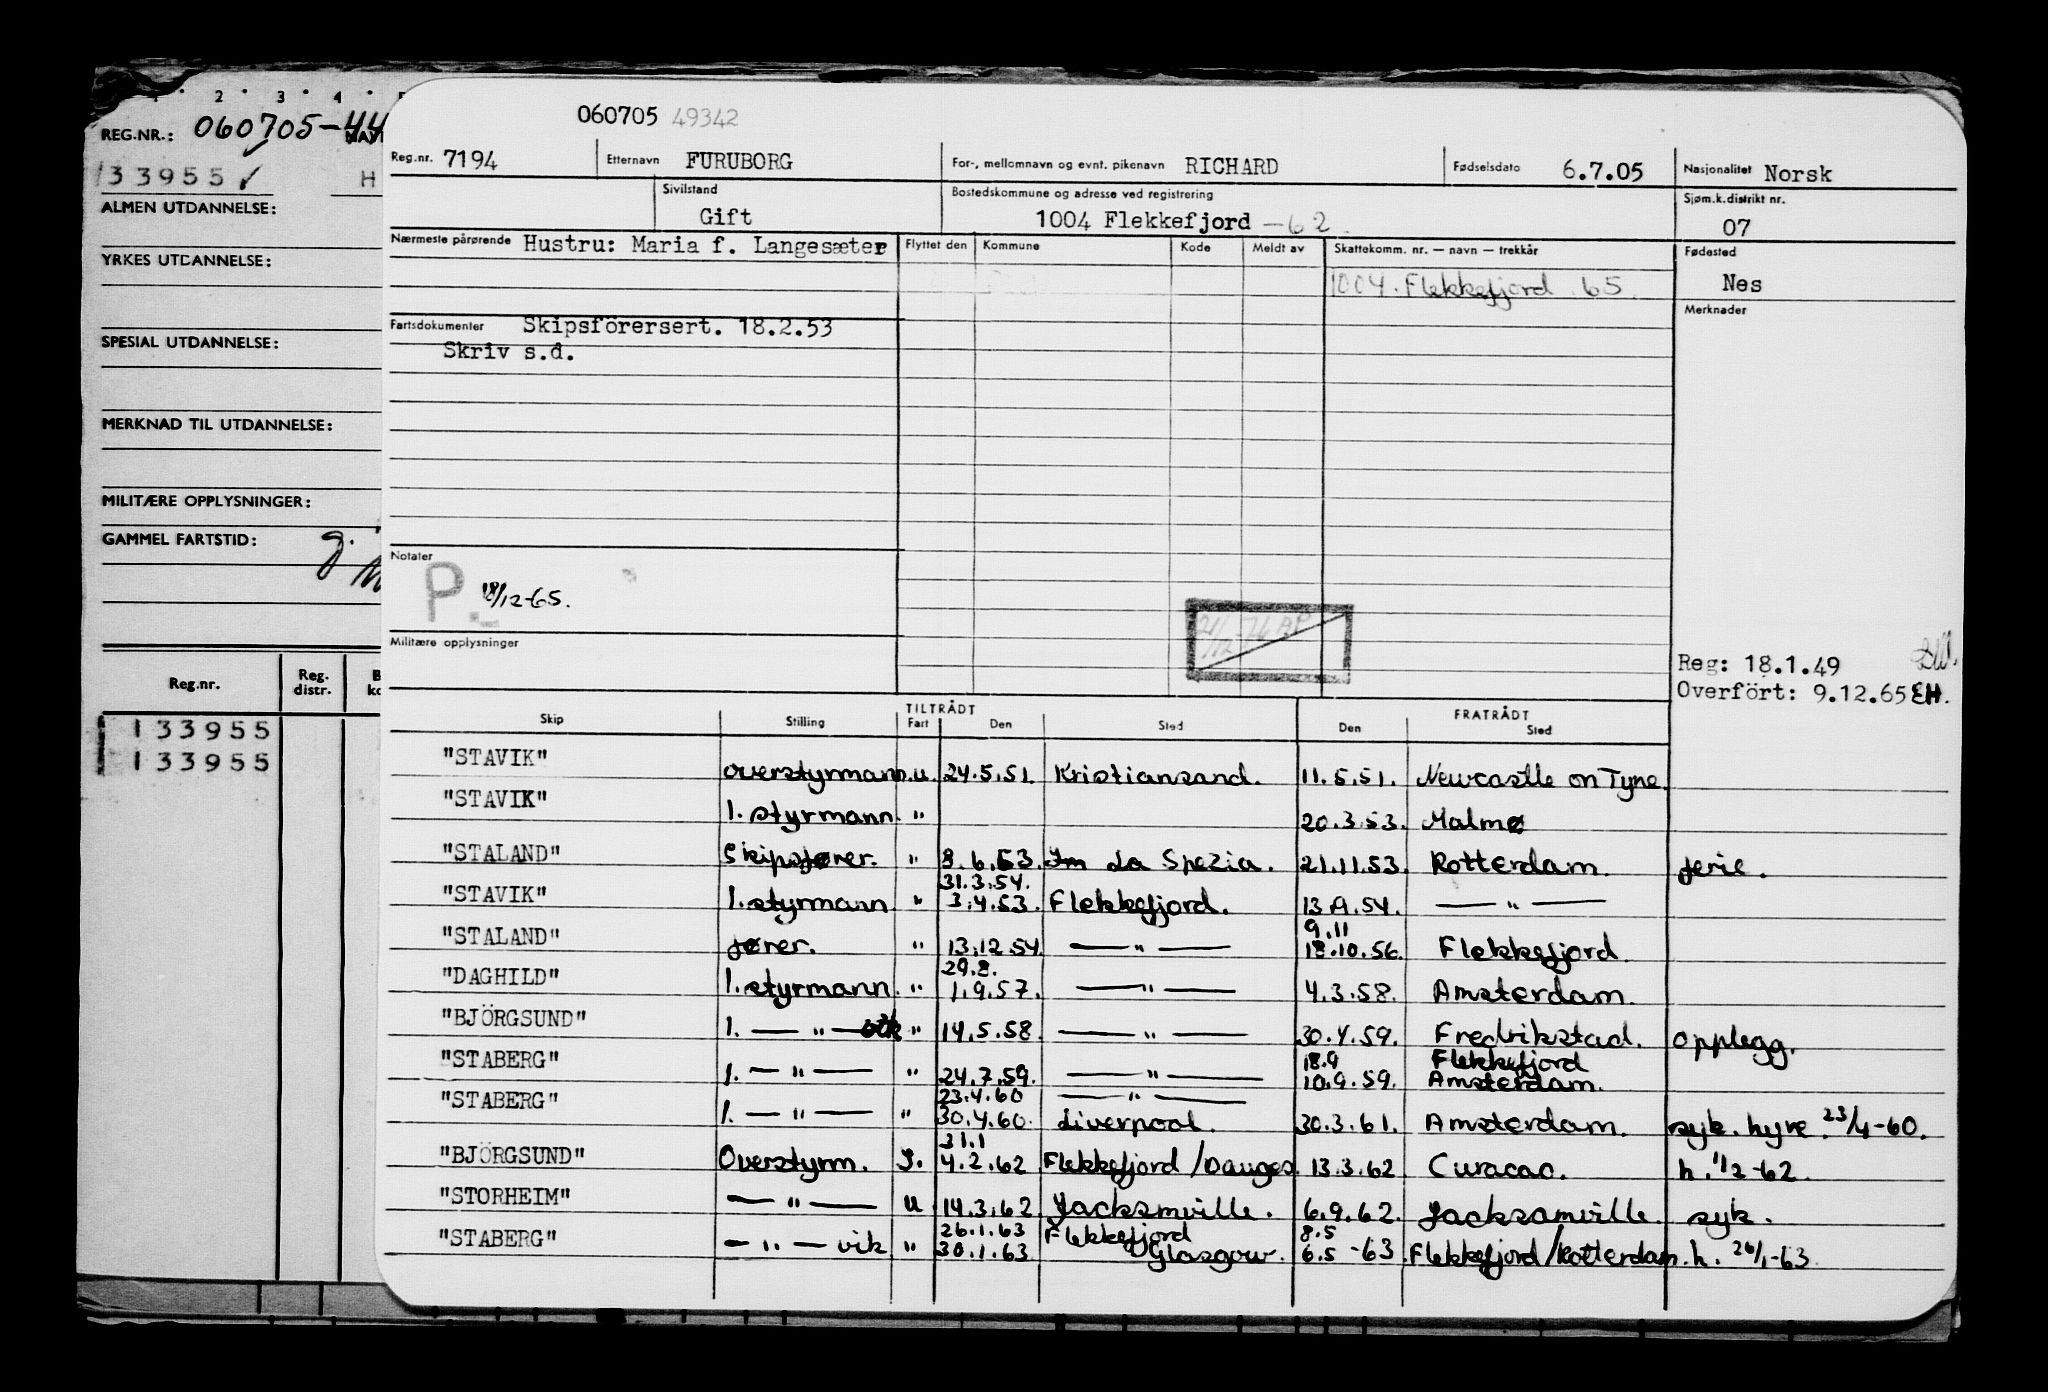 1 2 3 4
REG.NR.: 060705-44
133955 ✓ H
ALMEN UTDANNELSE:
YRKES UTDANNELSE:
SPESIAL UTDANNELSE:
MERKNAD TIL UTDANNELSE:
MILITÆRE OPPLYSNINGER:
GAMMEL FARTSTID:
Reg.nr. Reg. distr.
133955
133955
060705 49342
Reg.nr. 7194 Etternavn FURUBORG For-, mellomnavn og evnt. pikenavn RICHARD Fødselsdato 6.7.05 Nasjonalitet Norsk
Sivilstand Gift Bostedskommune og adresse ved registrering 1004 Flekkefjord -62. Sjøm.k.distrikt nr. 07
Nærmeste pårørende Hustru: Maria f. Langesæter Flyttet den Kommune Kode Meldt av Skattekomm. nr. — navn — trekkår Fødested
1004. Flekkefjord. 65. Nes
Fartsdokumenter Skipsförersert. 18.2.53 Merknader
Skriv s.d.
Notater
P. 18/12-65.
Militære opplysninger
Reg: 18.1.49
Overfört: 9.12.65 EH.
TILTRÅDT FRATRÅDT
Skip Stilling Fart Den Sted Den Sted
"STAVIK" overstyrmann. u. 24.5.51. Kristiansand. 11.5.51. Newcastle on Tyne.
"STAVIK" 1. styrmann " 20.3.53. Malmø
"STALAND" Skipsfører. " 8.6.53. La Spezia. 21.11.53. Rotterdam. ferie.
31.3.54.
"STAVIK" 1. styrmann " 3.4.53. Flekkefjord. 13.9.54. — " —
9.11
"STALAND" fører. " 13.12.54. — " — 18.10.56. Flekkefjord.
29.8.
"DAGHILD" 1. styrmann. " 1.9.57. — " — 4.3.58. Amsterdam.
"BJÖRGSUND" 1. — " — " 14.5.58. — " — 30.4.59. Fredrikstad. opplegg.
18.9 Flekkefjord
"STABERG" 1. — " — " 24.7.59. — " — 10.9.59. Amsterdam.
23.4.60 — " —
"STABERG" 1. — " — " 30.4.60. Liverpool. 30.3.61. Amsterdam. syk. hyre. 23/4-60.
31.1
"BJÖRGSUND" Overstyrm. 4.2.62 Flekkefjord / 13.3.62 Curacao. h. 1/2-62.
"STORHEIM" — " — u 14.3.62 Jacksonville. 6.9.62. Jacksonville. syk.
26.1.63 Flekkefjord 8.5
"STABERG" — " — vik " 30.1.63. Glasgow. 6.5 -63. Flekkefjord/Rotterdam. h. 26/1-63.